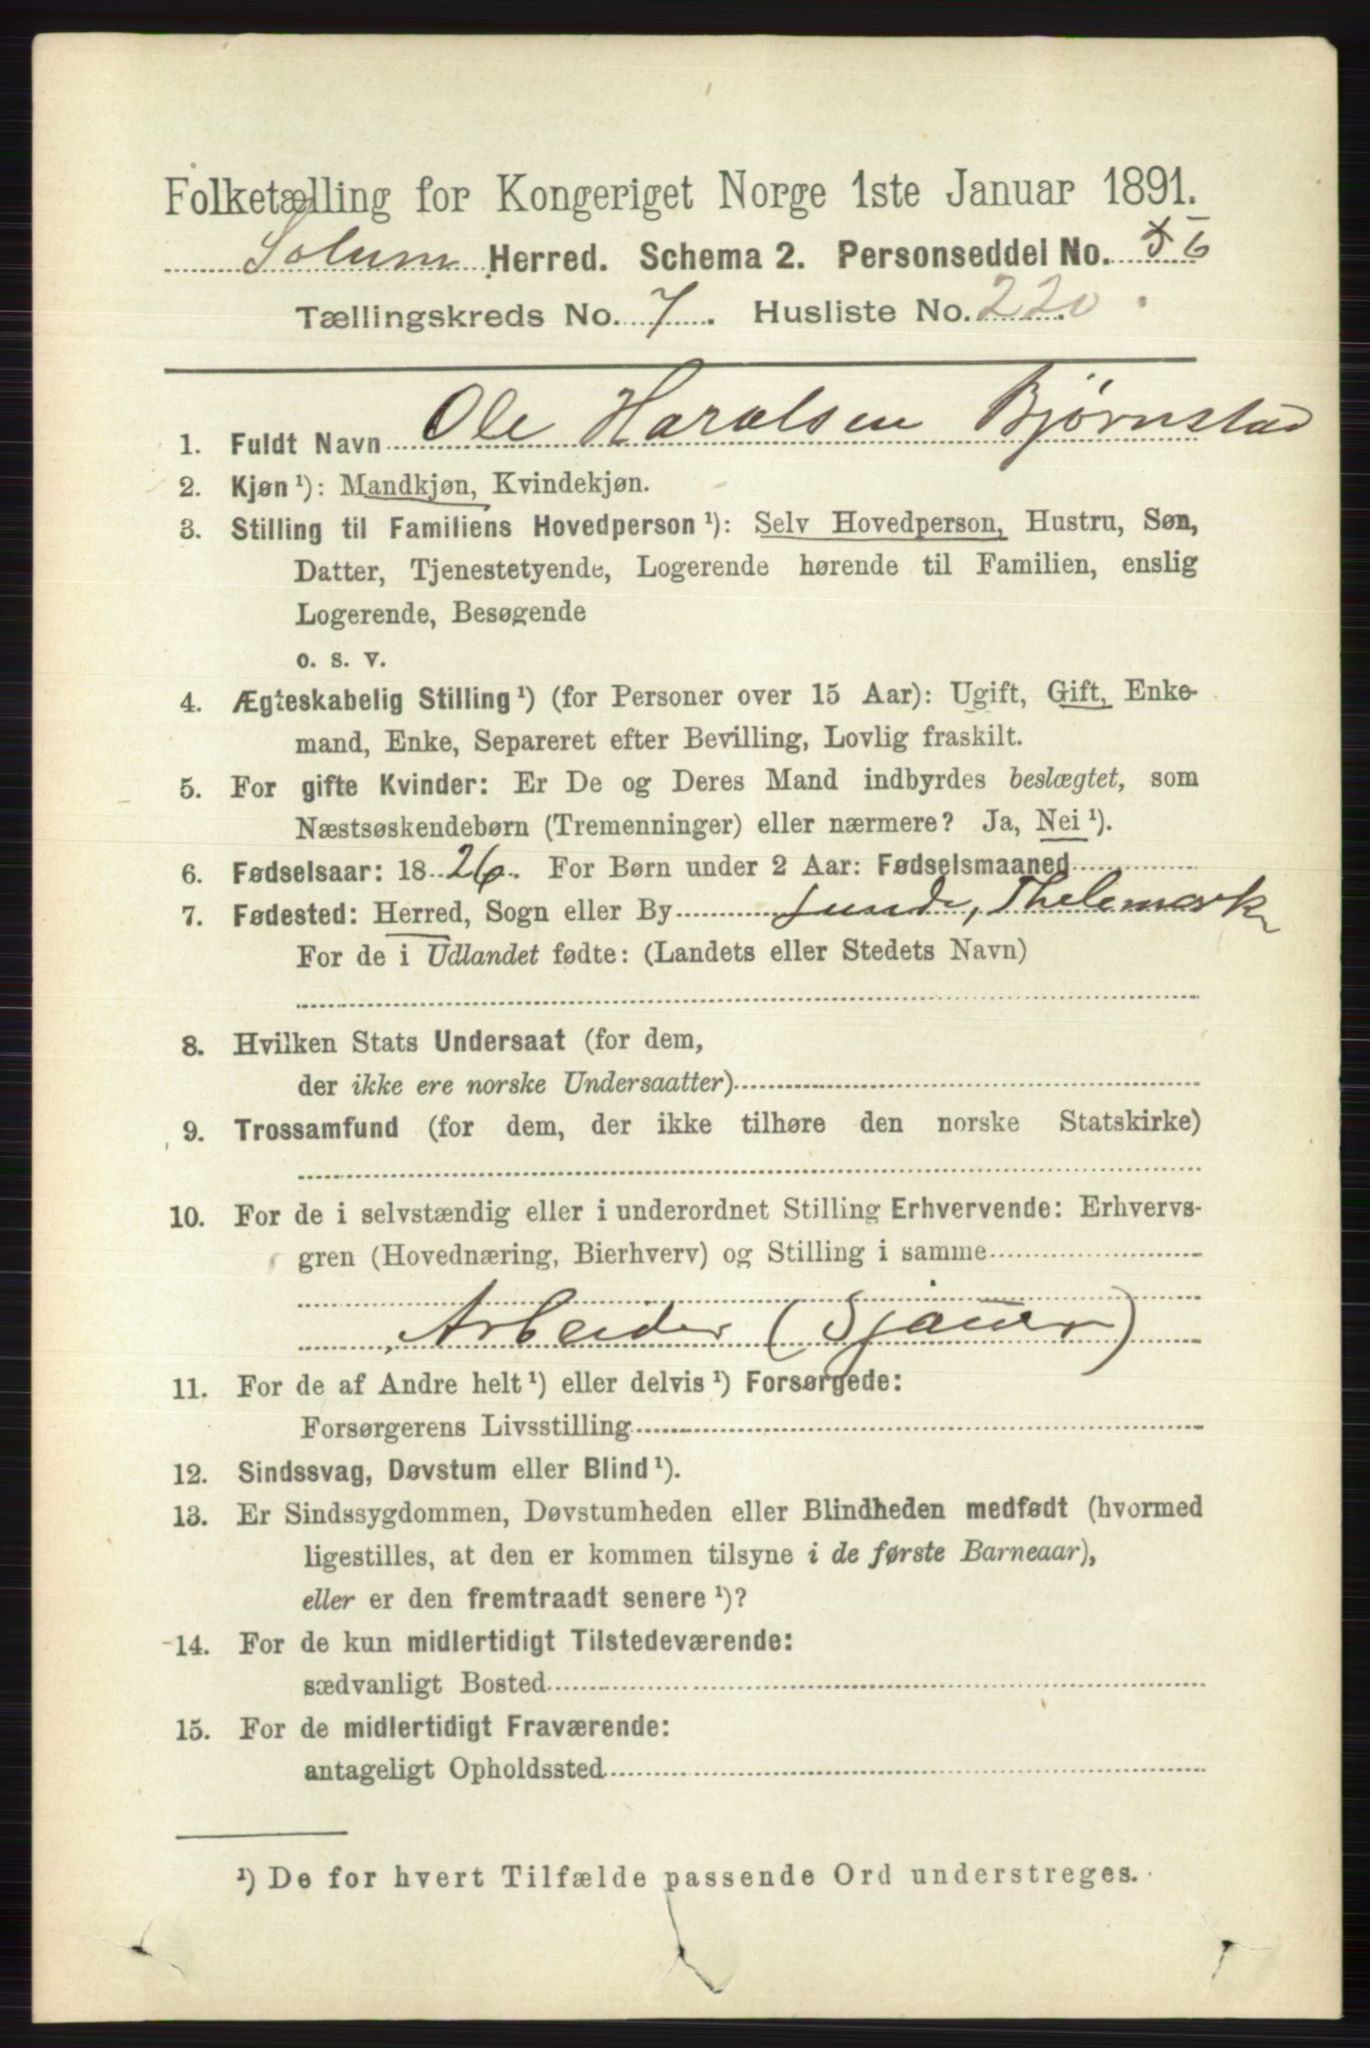 Folketælling for Kongeriget Norge 1ste Januar 1891.
Solum Herred. Schema 2. Personseddel No. 6
Tællingskreds No. 7. Husliste No. 220.
1. Fuldt Navn Ole Haralsen Bjørnstad
2. Kjøn¹): Mandkjøn, Kvindekjøn.
3. Stilling til Familiens Hovedperson¹): Selv Hovedperson, Hustru, Søn,
Datter, Tjenestetyende, Logerende hørende til Familien, enslig
Logerende, Besøgende
o. s. v.
4. Ægteskabelig Stilling¹) (for Personer over 15 Aar): Ugift, Gift, Enke-
mand, Enke, Separeret efter Bevilling, Lovlig fraskilt.
5. For gifte Kvinder: Er De og Deres Mand indbyrdes beslægtet, som
Næstsøskendebørn (Tremenninger) eller nærmere? Ja, Nei¹).
6. Fødselsaar: 1826. For Børn under 2 Aar: Fødselsmaaned
7. Fødested: Herred, Sogn eller By Lunde, Thelemark
For de i Udlandet fødte: (Landets eller Stedets Navn)
8. Hvilken Stats Undersaat (for dem,
der ikke ere norske Undersaatter)
9. Trossamfund (for dem, der ikke tilhøre den norske Statskirke)
10. For de i selvstændig eller i underordnet Stilling Erhvervende: Erhvervs-
gren (Hovednæring, Bierhverv) og Stilling i samme
Arbeider (Sjauer)
11. For de af Andre helt¹) eller delvis¹) Forsørgede:
Forsørgerens Livsstilling
12. Sindssvag, Døvstum eller Blind¹).
13. Er Sindssygdommen, Døvstumheden eller Blindheden medfødt (hvormed
ligestilles, at den er kommen tilsyne i de første Barneaar),
eller er den fremtraadt senere¹)?
14. For de kun midlertidigt Tilstedeværende:
sædvanligt Bosted
15. For de midlertidigt Fraværende:
antageligt Opholdssted
¹) De for hvert Tilfælde passende Ord understreges.